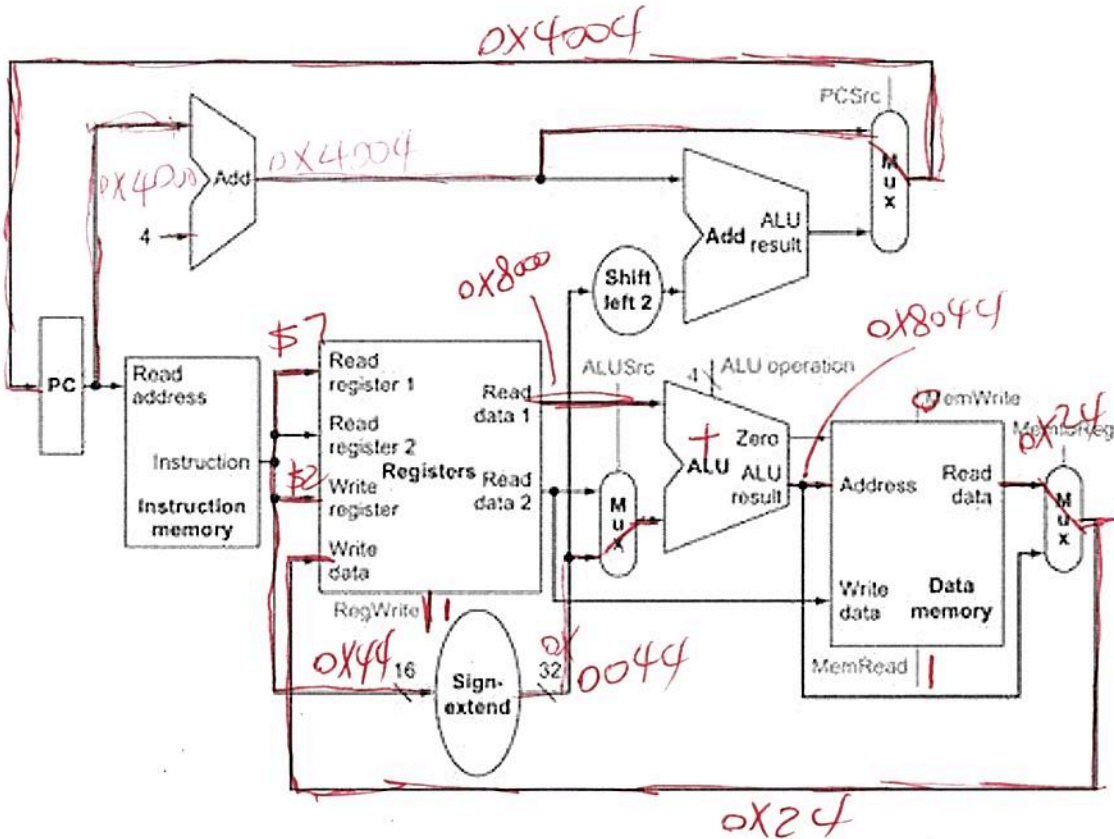 0x4004
PCSrc
M
u
x
0x4000
Add
0x4004
4
Add
ALU
result
Shift
left 2
0x8000
0x8044
$7
PC
Read
address
Instruction
Instruction
memory
Read
register 1
Read
register 2
$2
Write
register
Write
data
Registers
Read
data 1
Read
data 2
RegWrite
1
ALUSrc
M
u
x
4
ALU operation
+
Zero
ALU
ALU
result
0
MemWrite
MemtoReg
0x24
Address
Read
data
Write
data
Data
memory
MemRead
1
M
u
x
0x44
16
Sign-
extend
32
0x
0044
0x24